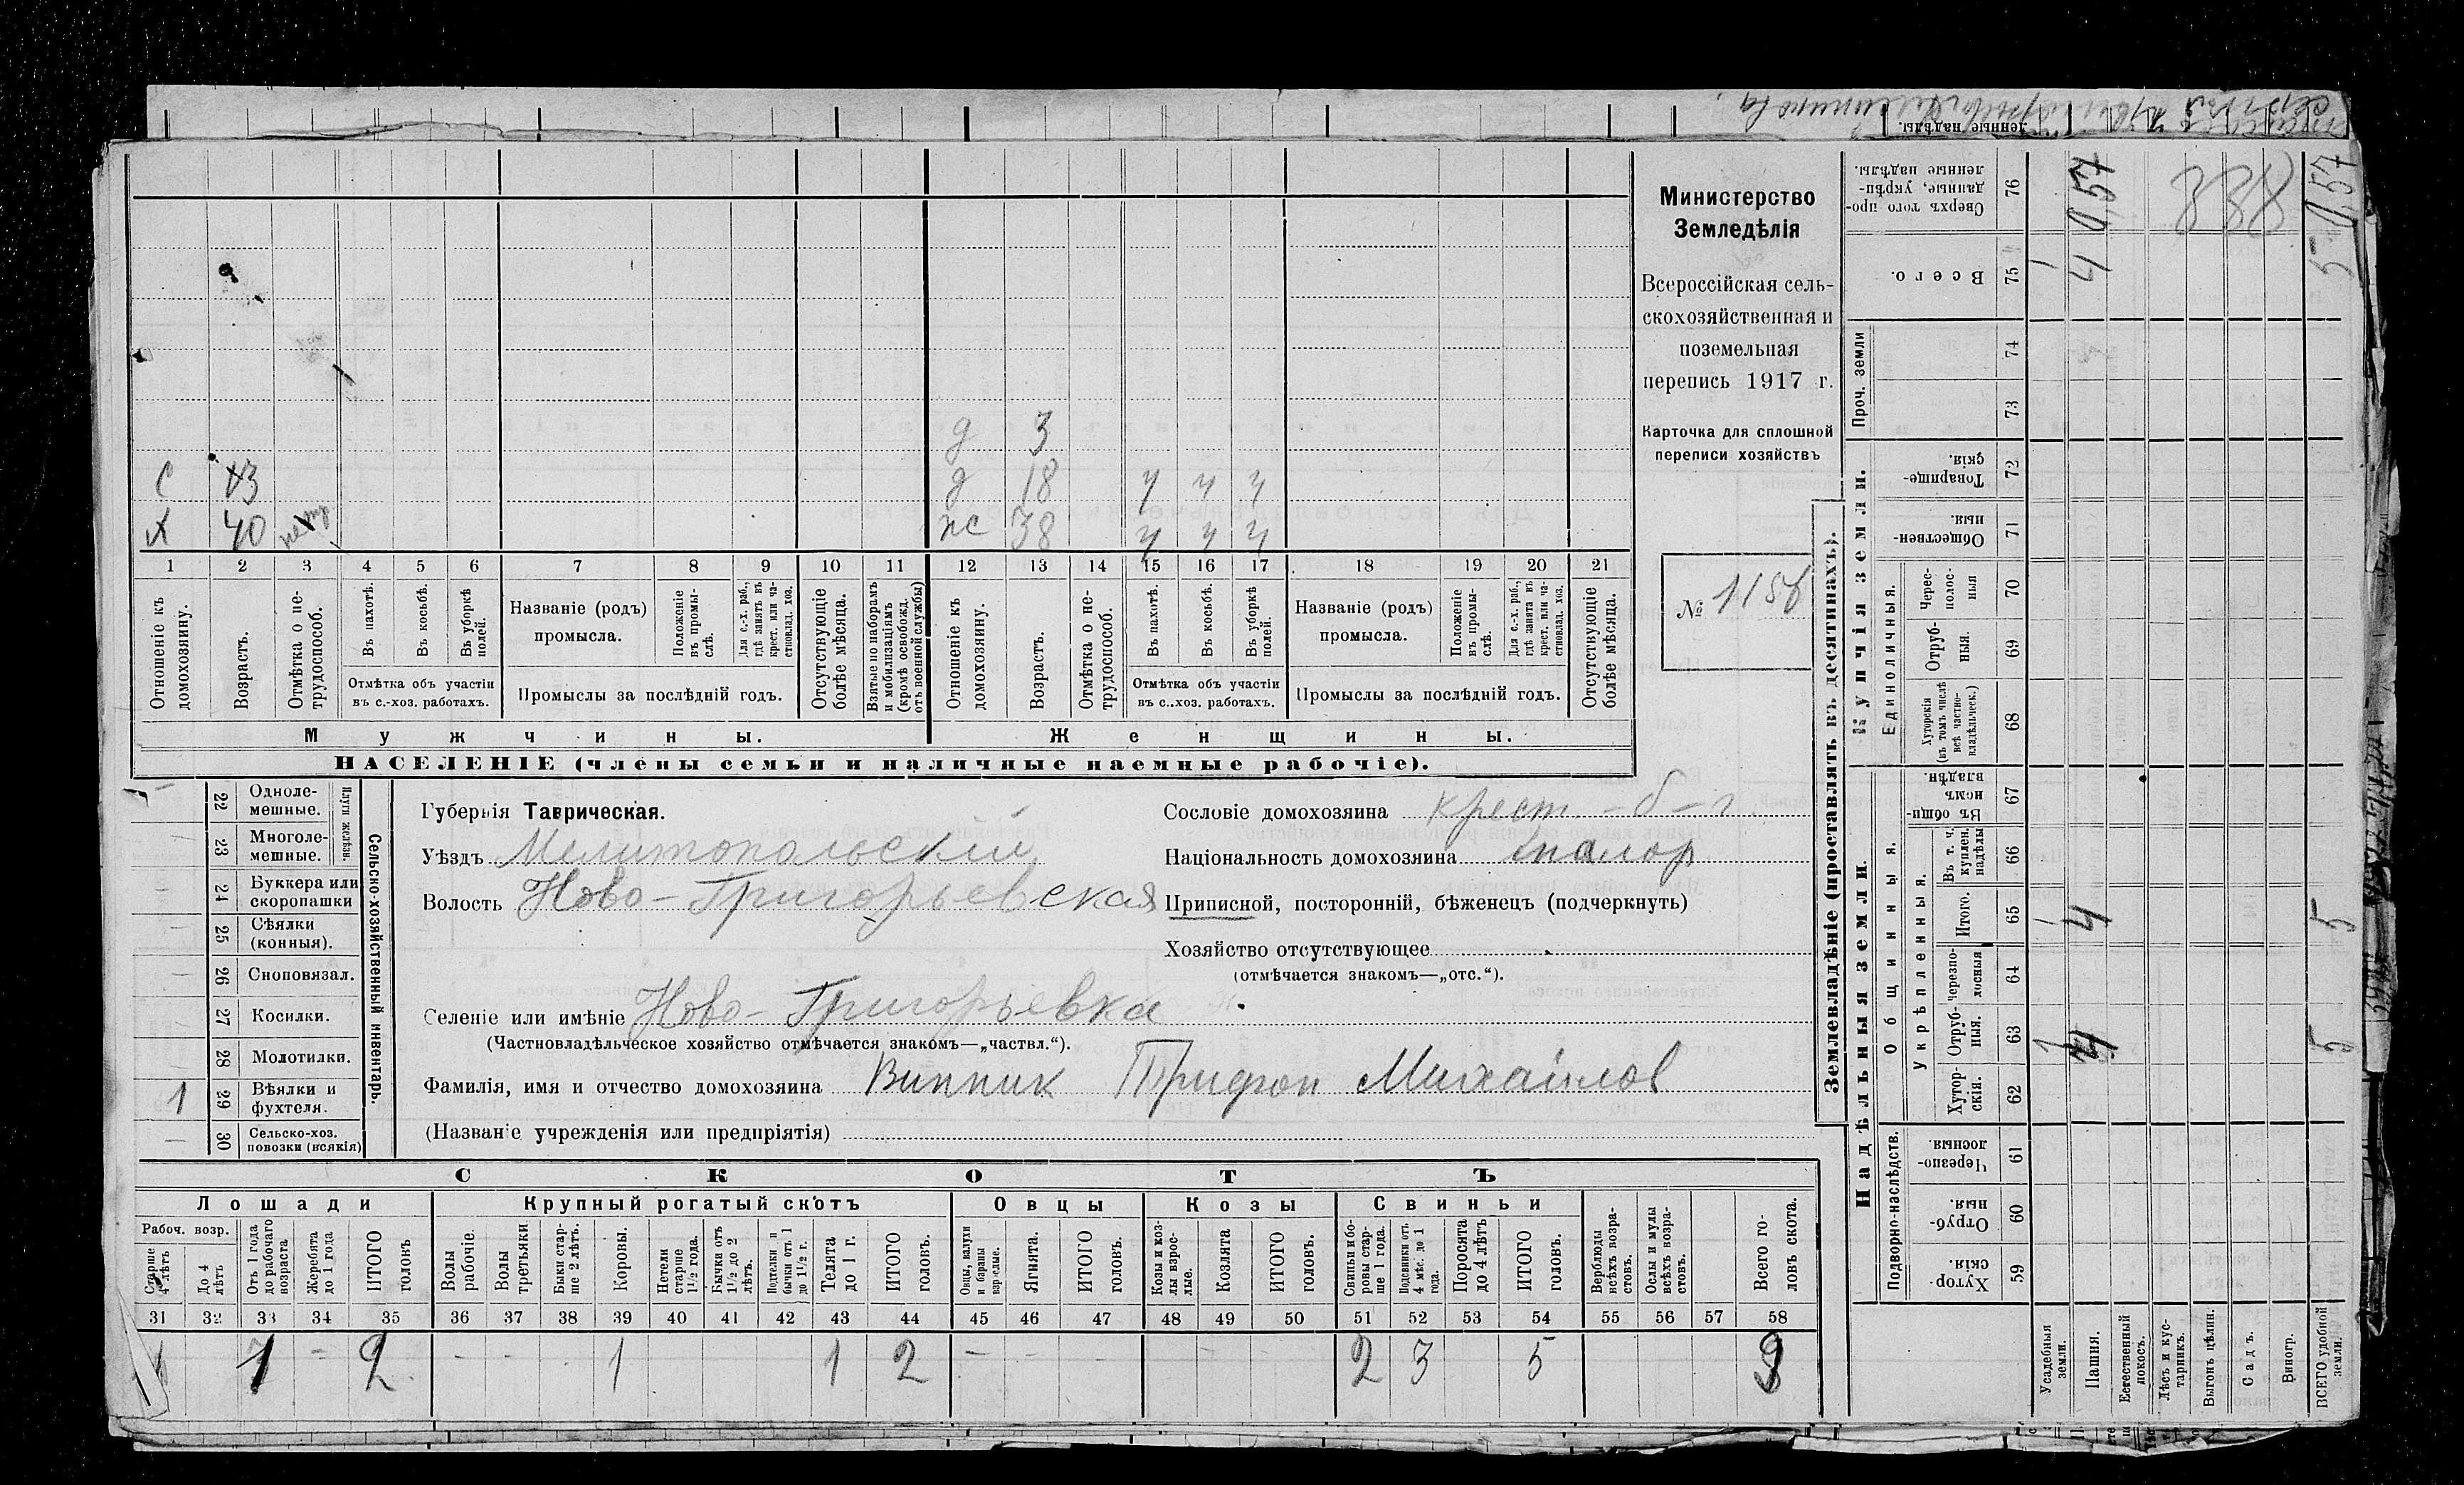 Министерство
Земледѣлія
Всероссійская сель-
скохозяйственная и
поземельная
перепись 1917 г.
Карточка для сплошной
переписи хозяйствъ
№ 115
д 3
С 13 д 18 ч ч ч
Х 40 ж 38 ч ч ч
1 2 3 4 5 6 7 8 9 10 11 12 13 14 15 16 17 18 19 20 21
Отношеніе къ домохозяину.
Возрастъ.
Отмѣтка о не-трудоспособ.
Въ пахотѣ.
Въ косьбѣ.
Въ уборкѣ полей.
Отмѣтка объ участіи
въ с.-хоз. работахъ.
Названіе (родъ)
промысла.
Положеніе въ промы-слѣ.
Для с.-х. раб., гдѣ занятъ въ крест. или ча-стновлад. хоз.
Промыслы за послѣдній годъ.
Отсутствующіе болѣе мѣсяца.
Взятые по наборамъ и мобилизаціямъ (кромѣ освобожд. отъ военной службы)
Отношеніе къ домохозяину.
Возрастъ.
Отмѣтка о не-трудоспособ.
Въ пахотѣ.
Въ косьбѣ.
Въ уборкѣ полей.
Отмѣтка объ участіи
въ с..хоз. работахъ.
Названіе (родъ)
промысла.
Положеніе въ промы-слѣ.
Для с.-х. раб., гдѣ занята въ крест. или ча-стновлад. хоз.
Промыслы за послѣдній годъ.
Отсутствующіе болѣе мѣсяца.
Мужчины.
Женщины.
НАСЕЛЕНІЕ (члены семьи и наличные наемные рабочіе).
Сельско-хозяйственный инвентарь.
Плуги желѣзн.
22 Одноле-мешные.
23 Многоле-мешные.
24 Буккера или скоропашки
25 Сѣялки (конныя).
26 Сноповязал.
27 Косилки.
28 Молотилки.
1 29 Вѣялки и фухтеля.
30 Сельско-хоз. повозки (всякія)
Губернія Таврическая.
Уѣздъ Мелитопольскій
Волость Ново-Григорьевская
Селеніе или имѣніе Ново-Григорьевка
(Частновладѣльческое хозяйство отмѣчается знакомъ—„частвл.“).
Фамилія, имя и отчество домохозяина Винник Трифон Михайлов
(Названіе учрежденія или предпріятія)
Сословіе домохозяина крест.
Національность домохозяина малор
Приписной, посторонній, бѣженецъ (подчеркнуть)
Хозяйство отсутствующее
(отмѣчается знакомъ—„отс.“).
СКОТЪ
Лошади
Крупный рогатый скотъ
Овцы
Козы
Свиньи
Рабоч. возр.
Старше 4 лѣтъ
До 4 лѣтъ
Отъ 1 года до рабочаго возраста
Жеребята до 1 года
ИТОГО головъ
Волы рабочіе.
Волы третьяки
Быки стар-ше 2 лѣтъ.
Коровы.
Нетели старше 1½ года.
Бычки отъ 1½ до 2 лѣтъ.
Подтелки и бычки отъ 1 до 1½ г.
Телята до 1 г.
ИТОГО головъ.
Овцы, валухи и бараны взрослые.
Ягнята.
ИТОГО головъ.
Козы и коз-лы взрос-лые.
Козлята
ИТОГО головъ.
Свиньи и бо-ровы стар-ше 1 года.
Подсвинки отъ 4 мѣс. до 1 года.
Поросята до 4 лѣтъ
ИТОГО головъ.
Верблюды всѣхъ возра-стовъ.
Ослы и мулы всѣхъ возра-стовъ.
Всего го-ловъ скота.
31 32 33 34 35 36 37 38 39 40 41 42 43 44 45 46 47 48 49 50 51 52 53 54 55 56 57 58
1 1 – 2 – – – 1 1 2 – – – – – 2 3 5 9
Землевладѣніе (проставлять въ десятинахъ).
Купчія земли.
Надѣльныя земли.
Проч. земли
Единоличныя.
Общинныя.
Укрѣпленныя.
Подворно-наслѣдств.
76 Сверхъ того про-данные, укрѣп-ленные надѣлы.
75 Всего.
74
73
72 Товарище-скія.
71 Обществен-ныя.
70 Черес-полос-ныя
69 Отруб-ныя.
68 Хуторскія (въ томъ числѣ всѣ частно-владѣльческ.)
67 Въ общин-номъ владѣн.
66 Въ т. ч. куплен. надѣлы
65 Итого.
64 Черезпо-лосныя
63 Отруб-ныя.
62 Хутор-скія.
61 Черезпо-лосныя.
60 Отруб-ныя.
59 Хутор-скія.
Усадебныя земли.
Пашня.
Естественный покосъ.
Лѣсъ и кус-тарникъ.
Выгонъ цѣлин.
Садъ.
Виногр.
ВСЕГО удобной земли.
1 4 5
1 4 5
1 4 5
0,57 0,57
338
ленные надѣлы.